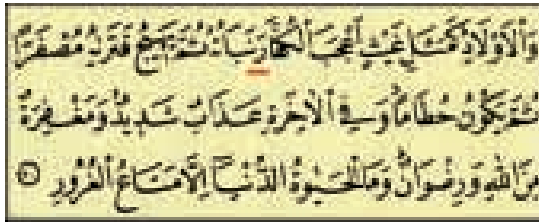 وَٱلْأَوْلَٰدِ كَمَثَلِ غَيْثٍ أَعْجَبَ ٱلْكُفَّارَ نَبَاتُهُۥ ثُمَّ يَهِيجُ فَتَرَىٰهُ مُصْفَرًّا
ثُمَّ يَكُونُ حُطَٰمًا وَفِى ٱلْءَاخِرَةِ عَذَابٌ شَدِيدٌ وَمَغْفِرَةٌ
مِّنَ ٱللَّهِ وَرِضْوَٰنٌ وَمَا ٱلْحَيَوٰةُ ٱلدُّنْيَآ إِلَّا مَتَٰعُ ٱلْغُرُورِ